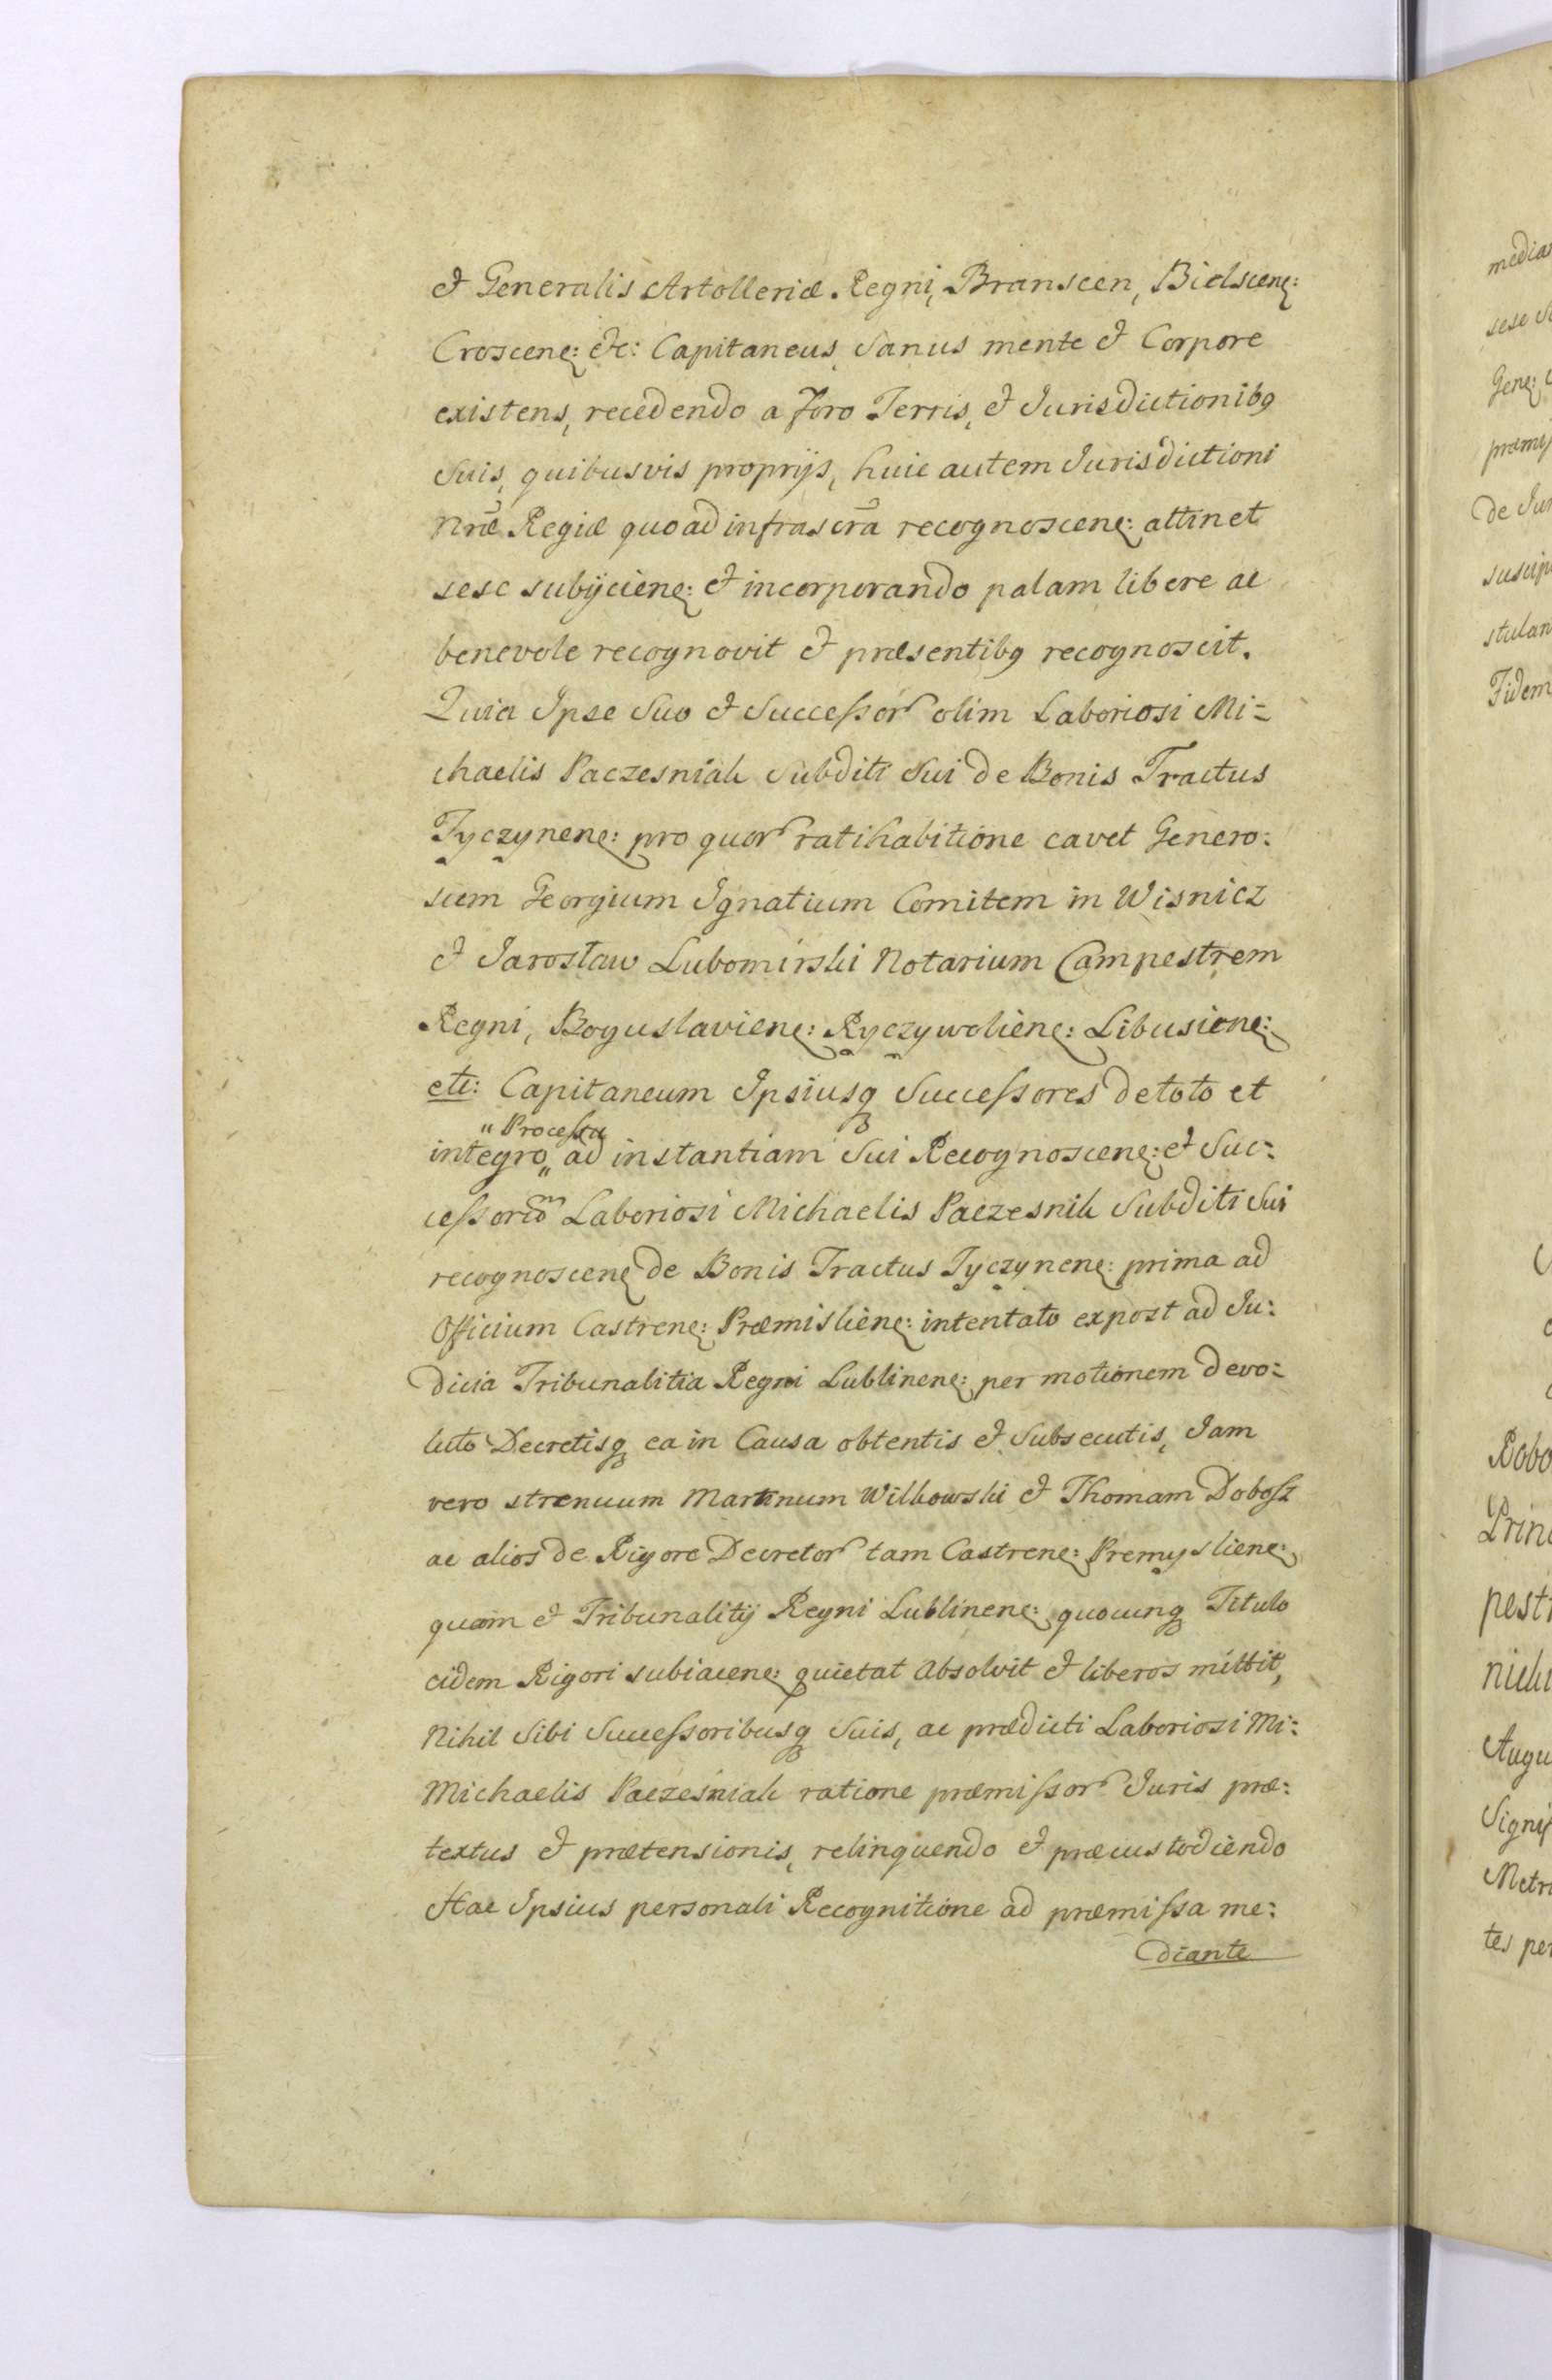 & Generalis Artolleriæ Regni, Branscen, Bielscenꝫ:
Croscenꝫ: &c: Capitaneus, Sanus mente & Corpore
existens, recedendo a Foro Terris, & Jurisdictionibꝯ
Suis, quibusvis proprijs, huic autem Jurisdictioni
Nræ̃ Regiæ quoad infrascrã recognoscenꝫ: attinet
sese subijcienꝫ: & incorporando palam libere ac
benevole recognovit & præsentibꝯ recognoscit.
Quia Ipse Suo & Succeſsorꝝ olim Laboriosi Mi=
chaelis Paczesniak Subditi Sui de Bonis Tractus
Tyczynenꝫ: pro quorꝝ ratihabitione cavet Genero:
sum Georgium Ignatium Comitem in Wisnicz
& Jarosław Lubomirski Notarium Campestrem
Regni, Boguslavienꝫ: Ryczywolienꝫ: Libusienꝫ:
etc: Capitaneum Ipsiusqꝫ Succeſsores de toto et
"Proceſsu
integro „ ad instantiam Sui Recognoscenꝫ: & Suc:
ceſsorũm Laboriosi Michaelis Paczesnik Subditi Sui
recognoscenꝫ de Bonis Tractus Tyczynenꝫ: prima ad
Officium Castrenꝫ: Præmislienꝫ: intentato expost ad Ju:
dicia Tribunalitia Regni Lublinenꝫ: per motionem devo=
luto Decretisqꝫ ea in Causa obtentis & Subsecutis, Jam
vero strenuum Martinum Wilkowski & Thomam Doboſz
ac alios de Rigore Decretorꝝ tam Castrenꝫ: Premyslienꝫ:
quam & Tribunalitij Regni Lublinenꝫ: quocunqꝫ Titulo
eidem Rigori subiacenꝫ: quietat Absolvit & liberos mittit,
Nihil Sibi Succeſsoribusqꝫ Suis, ac prædicti Laboriosi Mi:
Michaelis Paczesniak ratione præmiſsorꝝ Juris præ:
textus & prætensionis, relinquendo & præcustodiendo
Hac Ipsius personali Recognitione ad præmiſsa me:
diante